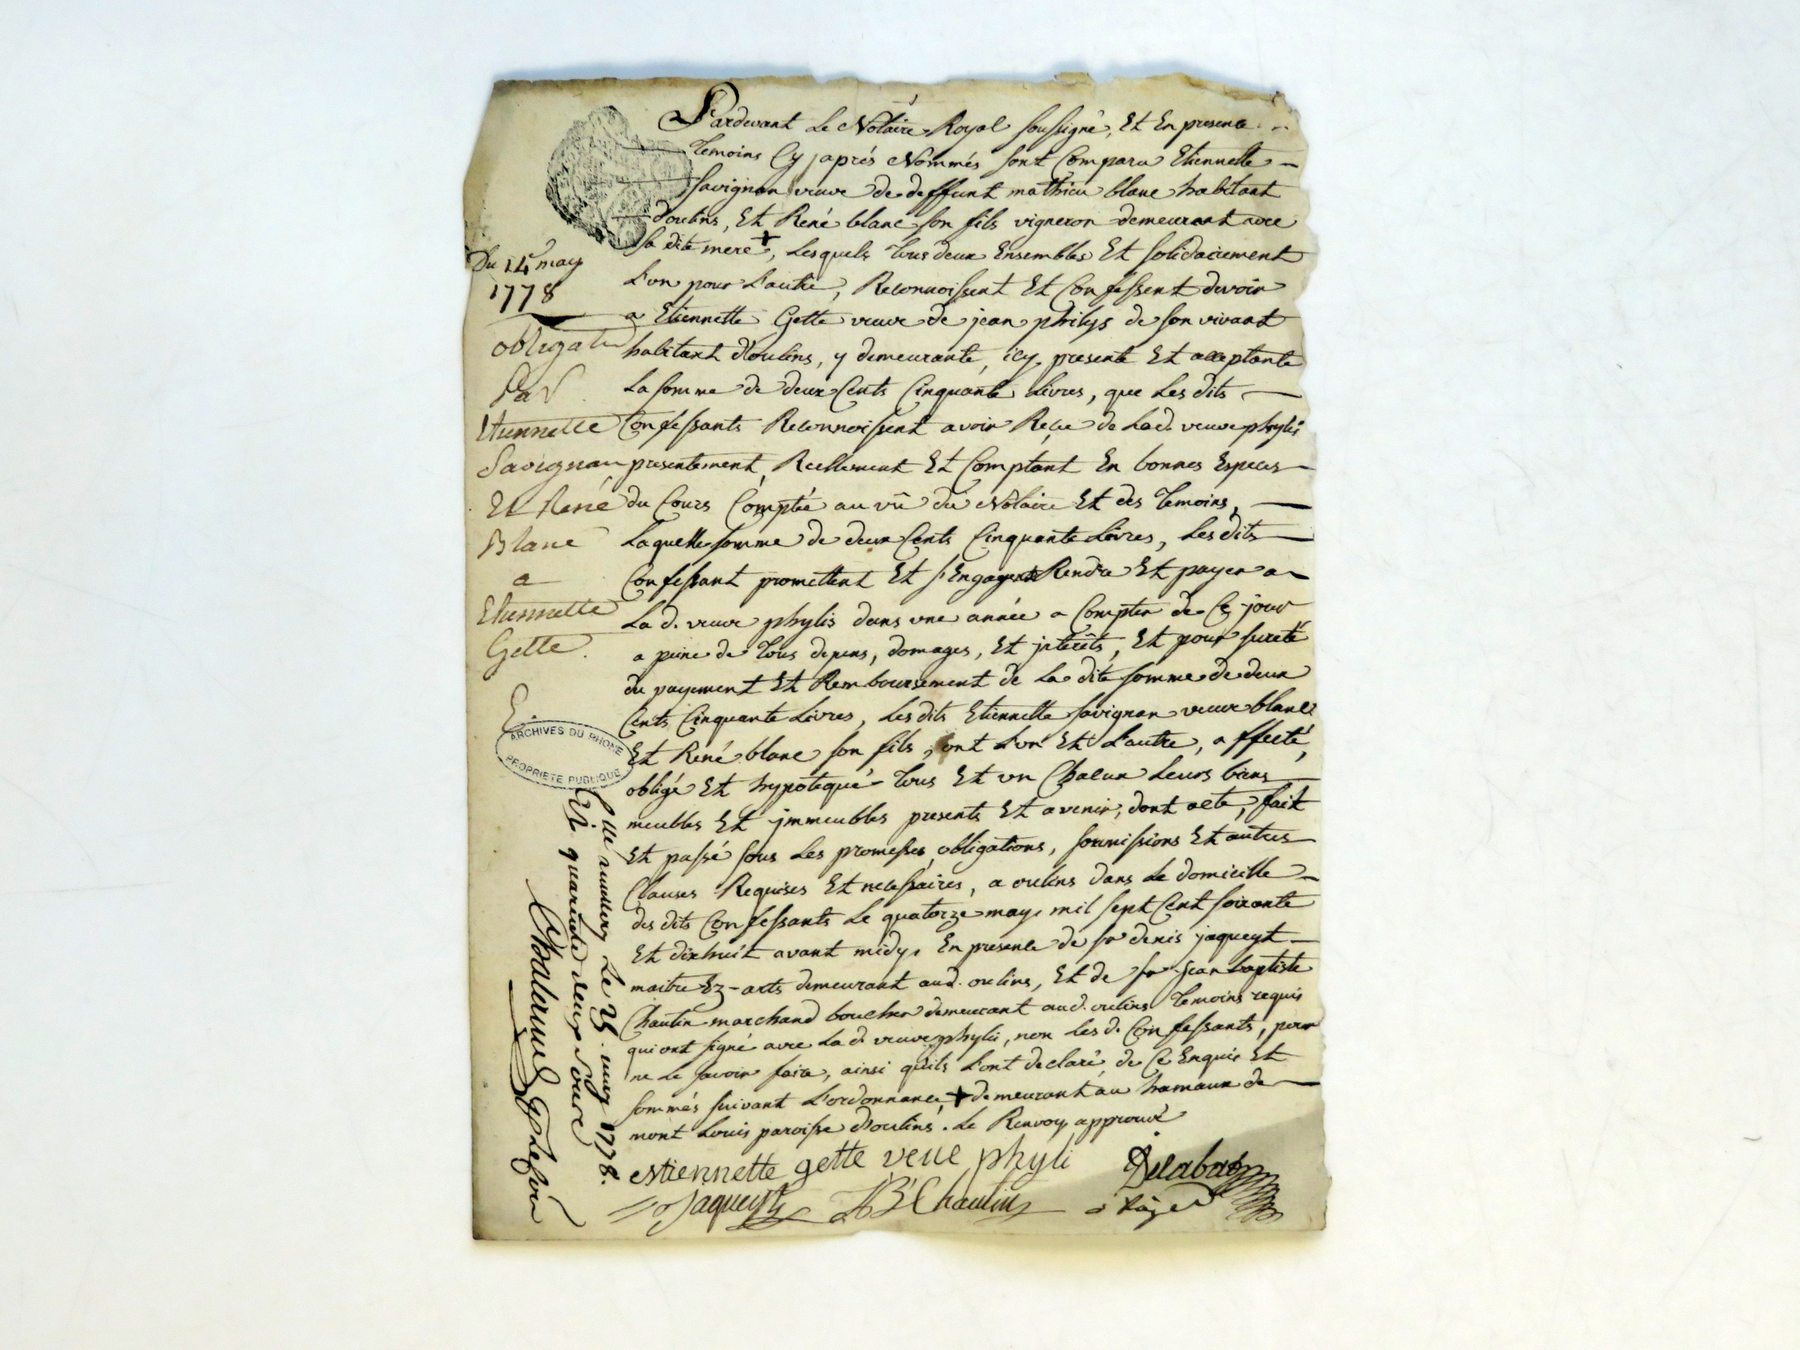 Pardevant Le Notaire Royal soussigné, Et En presence
Temoins Cy japrés Nommés sont Comparu Etiennette
savignan veuve de deffunt mathieu blanc habitant
doulins, Et René blanc son fils vigneron demeurant avec
sa dite mere +, Lesquels Tous deux Ensembles Et solidairement
L'un pour L'autre, Reconnoissent Et Confessent devoir
a Etiennette Gette veuve de jean philys de son vivant
habitant d'oulins, y demeurante, icy presente Et acceptante
La somme de deux Cents Cinquante Livres, que Les dits
Confessants Reconnoissent avoir Reçue de La d. veuve phylis
presentement, Reellement Et Comptant En bonnes Especes
du Cours Comptée au vû du Notaire Et des Temoins,
Laquelle somme de deux Cents Cinquante Livres, Les dits
Confessant promettent Et s'Engagent Rendre Et payer a
La d. veuve phylis dans une année a Compter de Ce jour
a peine de Tous depens, domages, Et jnterêts, Et pour sureté
du payement Et Remboursement de La dite somme de deux
Cents Cinquante Livres, Les dits Etiennette savignan veuve blanc
Et René blanc son fils, ont L'un Et L'autre, affecté,
obligé Et hypotequé Tous Et un Chacun Leurs biens
meubles Et jmmeubles presents Et avenir, dont acte, fait
Et passé sous Les promesses obligations, soumissions Et autres
Clauses Requises Et necessaires, a oulins dans Le domicille
des dits Confessants Le quatorze may mil sept Cent soixante
Et dixhuit avant midy, En presence de sr denis jaqueyt
maitre Ez-arts demeurant aud. oulins, Et de sr jean baptiste
Chautin marchand boucher demeurant aud. oulins Temoins requis
qui ont signé avec La d. veuve phylis, non Les d. Confessants, pour
ne Le savoir faire, ainsi qu'ils L'ont declaré, de Ce Enquis Et
sommés suivant L'ordonnance + demeurant au hamaux de
mont Louis paroisse d'oulins. Le Renvoy approuvé
estiennette gette veue phyli
Jaqueyt JB Chautin
Du 14e may
1778
obligat
Par
Etiennette
Savignan
Et René
Blanc
a
Etiennette
Gette.
E.
ARCHIVES DU RHONE
PROPRIETE PUBLIQUE
Le 25 may 1778.